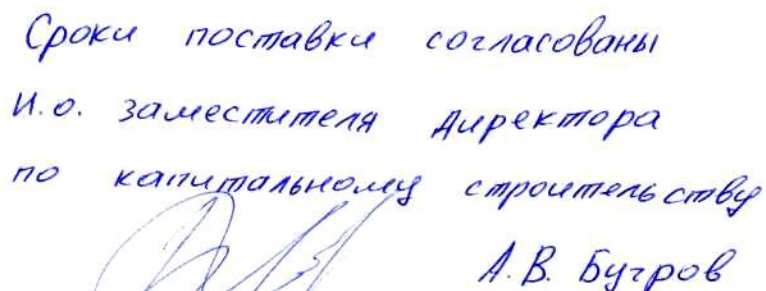 Сроки поставки согласованы
И.о. заместителя директора
по капитальному строительству
А.В. Бугров